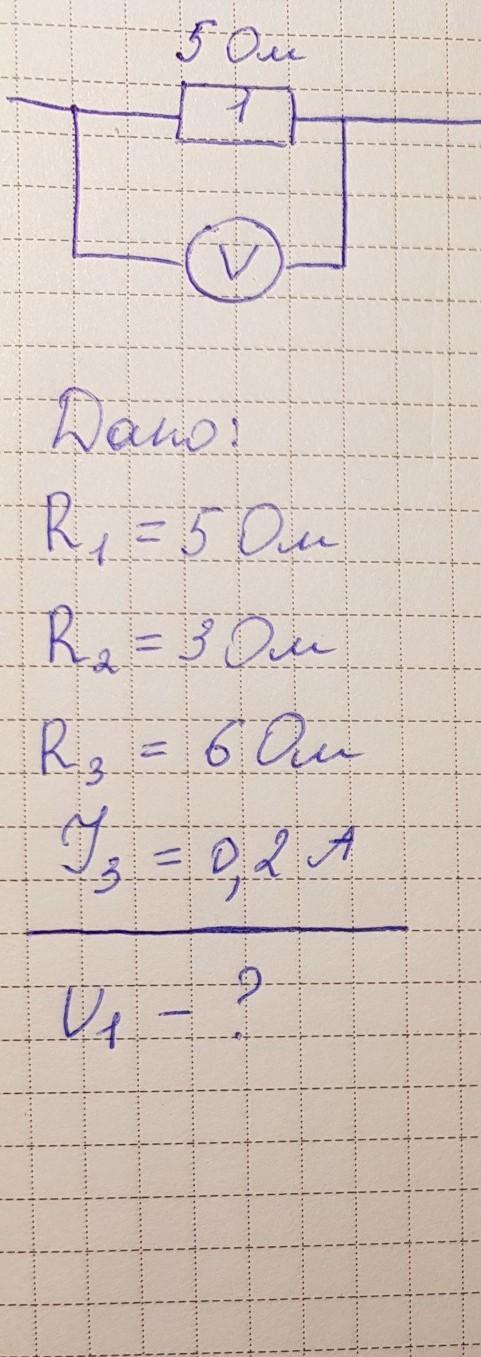 5 Ом
1
V
Дано:
R₁ = 5 Ом
R₂ = 3 Ом
R₃ = 6 Ом
J₃ = 0,2 А
U₁ - ?